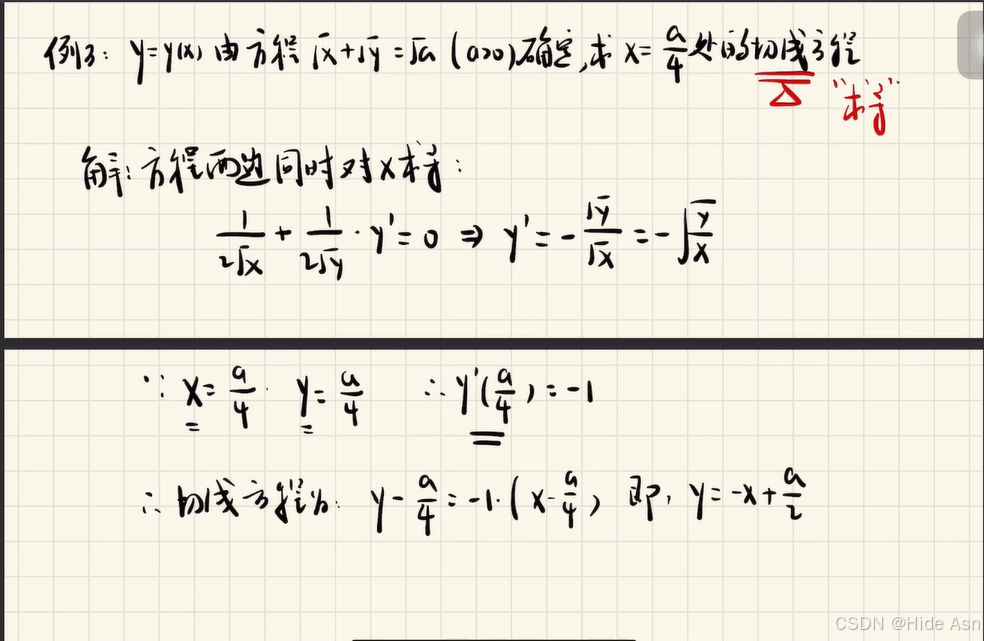 例3: y=y(x) 由方程 √x+√y=√a (a>0)确定,求 x=a/4 处的切线方程
△ "求导"
解: 方程两边同时对x求导:
1/(2√x) + 1/(2√y) · y' = 0 ⇒ y' = -√y/√x = -√(y/x)
∵ x=a/4 y=a/4 ∴ y'(a/4) = -1
∴ 切线方程为: y - a/4 = -1·(x - a/4) 即, y = -x + a/2
CSDN @Hide Asn